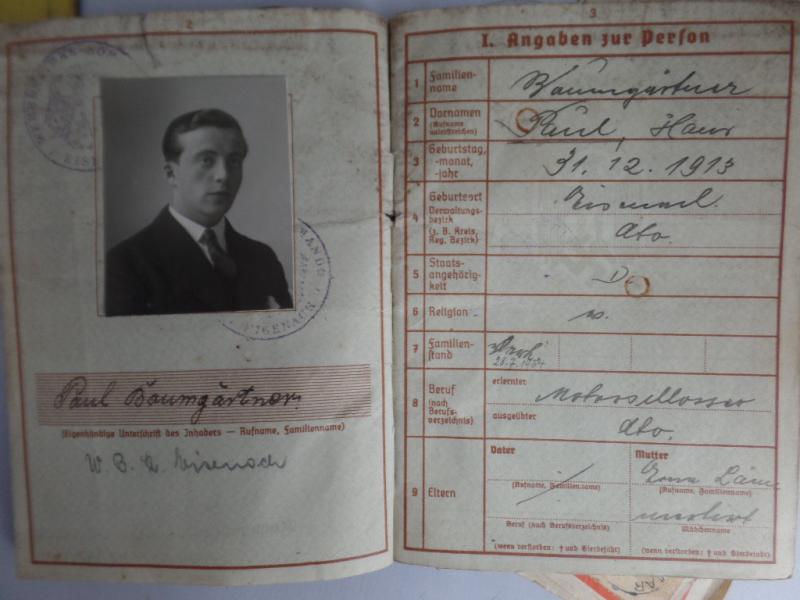 2
EISENACH
Paul Baumgärtner
(Eigenhändige Unterschrift des Inhabers — Rufname, Familienname)
W. B. K. Eisenach
3
I. Angaben zur Person
1 Familien-
name
Baumgärtner
2 Vornamen
(Rufname
unterstreichen)
Paul, Hans
3 Geburtstag,
-monat,
-jahr
31. 12. 1913
4 Geburtsort
Verwaltungs-
bezirk
(z. B. Kreis,
Reg. Bezirk)
Eisenach
dto.
5 Staats-
angehörig-
keit
D.
6 Religion
7 Familien-
stand
8 Beruf
(nach
Berufs-
verzeichnis)
erlernter
Motorschlosser
ausgeübter
dto.
9 Eltern
Vater
(Rufname, Familienname)
Beruf (nach Berufsverzeichnis)
(wenn verstorben: † und Sterbejahr)
Mutter
(Rufname, Familienname)
Mädchenname
(wenn verstorben: † und Sterbejahr)